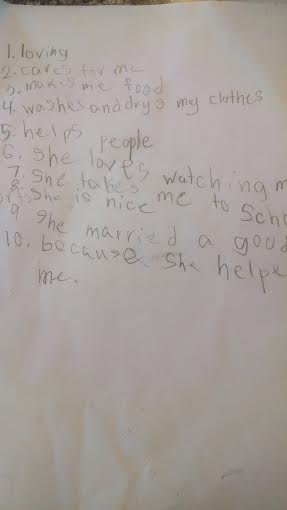 1. loving
2. cares for me
3. makes me food
4. washes and drys my clothes
5. helps people
6. She loves watching m
7. She takes me to Scho
8. She is nice
9 She married a good
10. because She helpe
me.